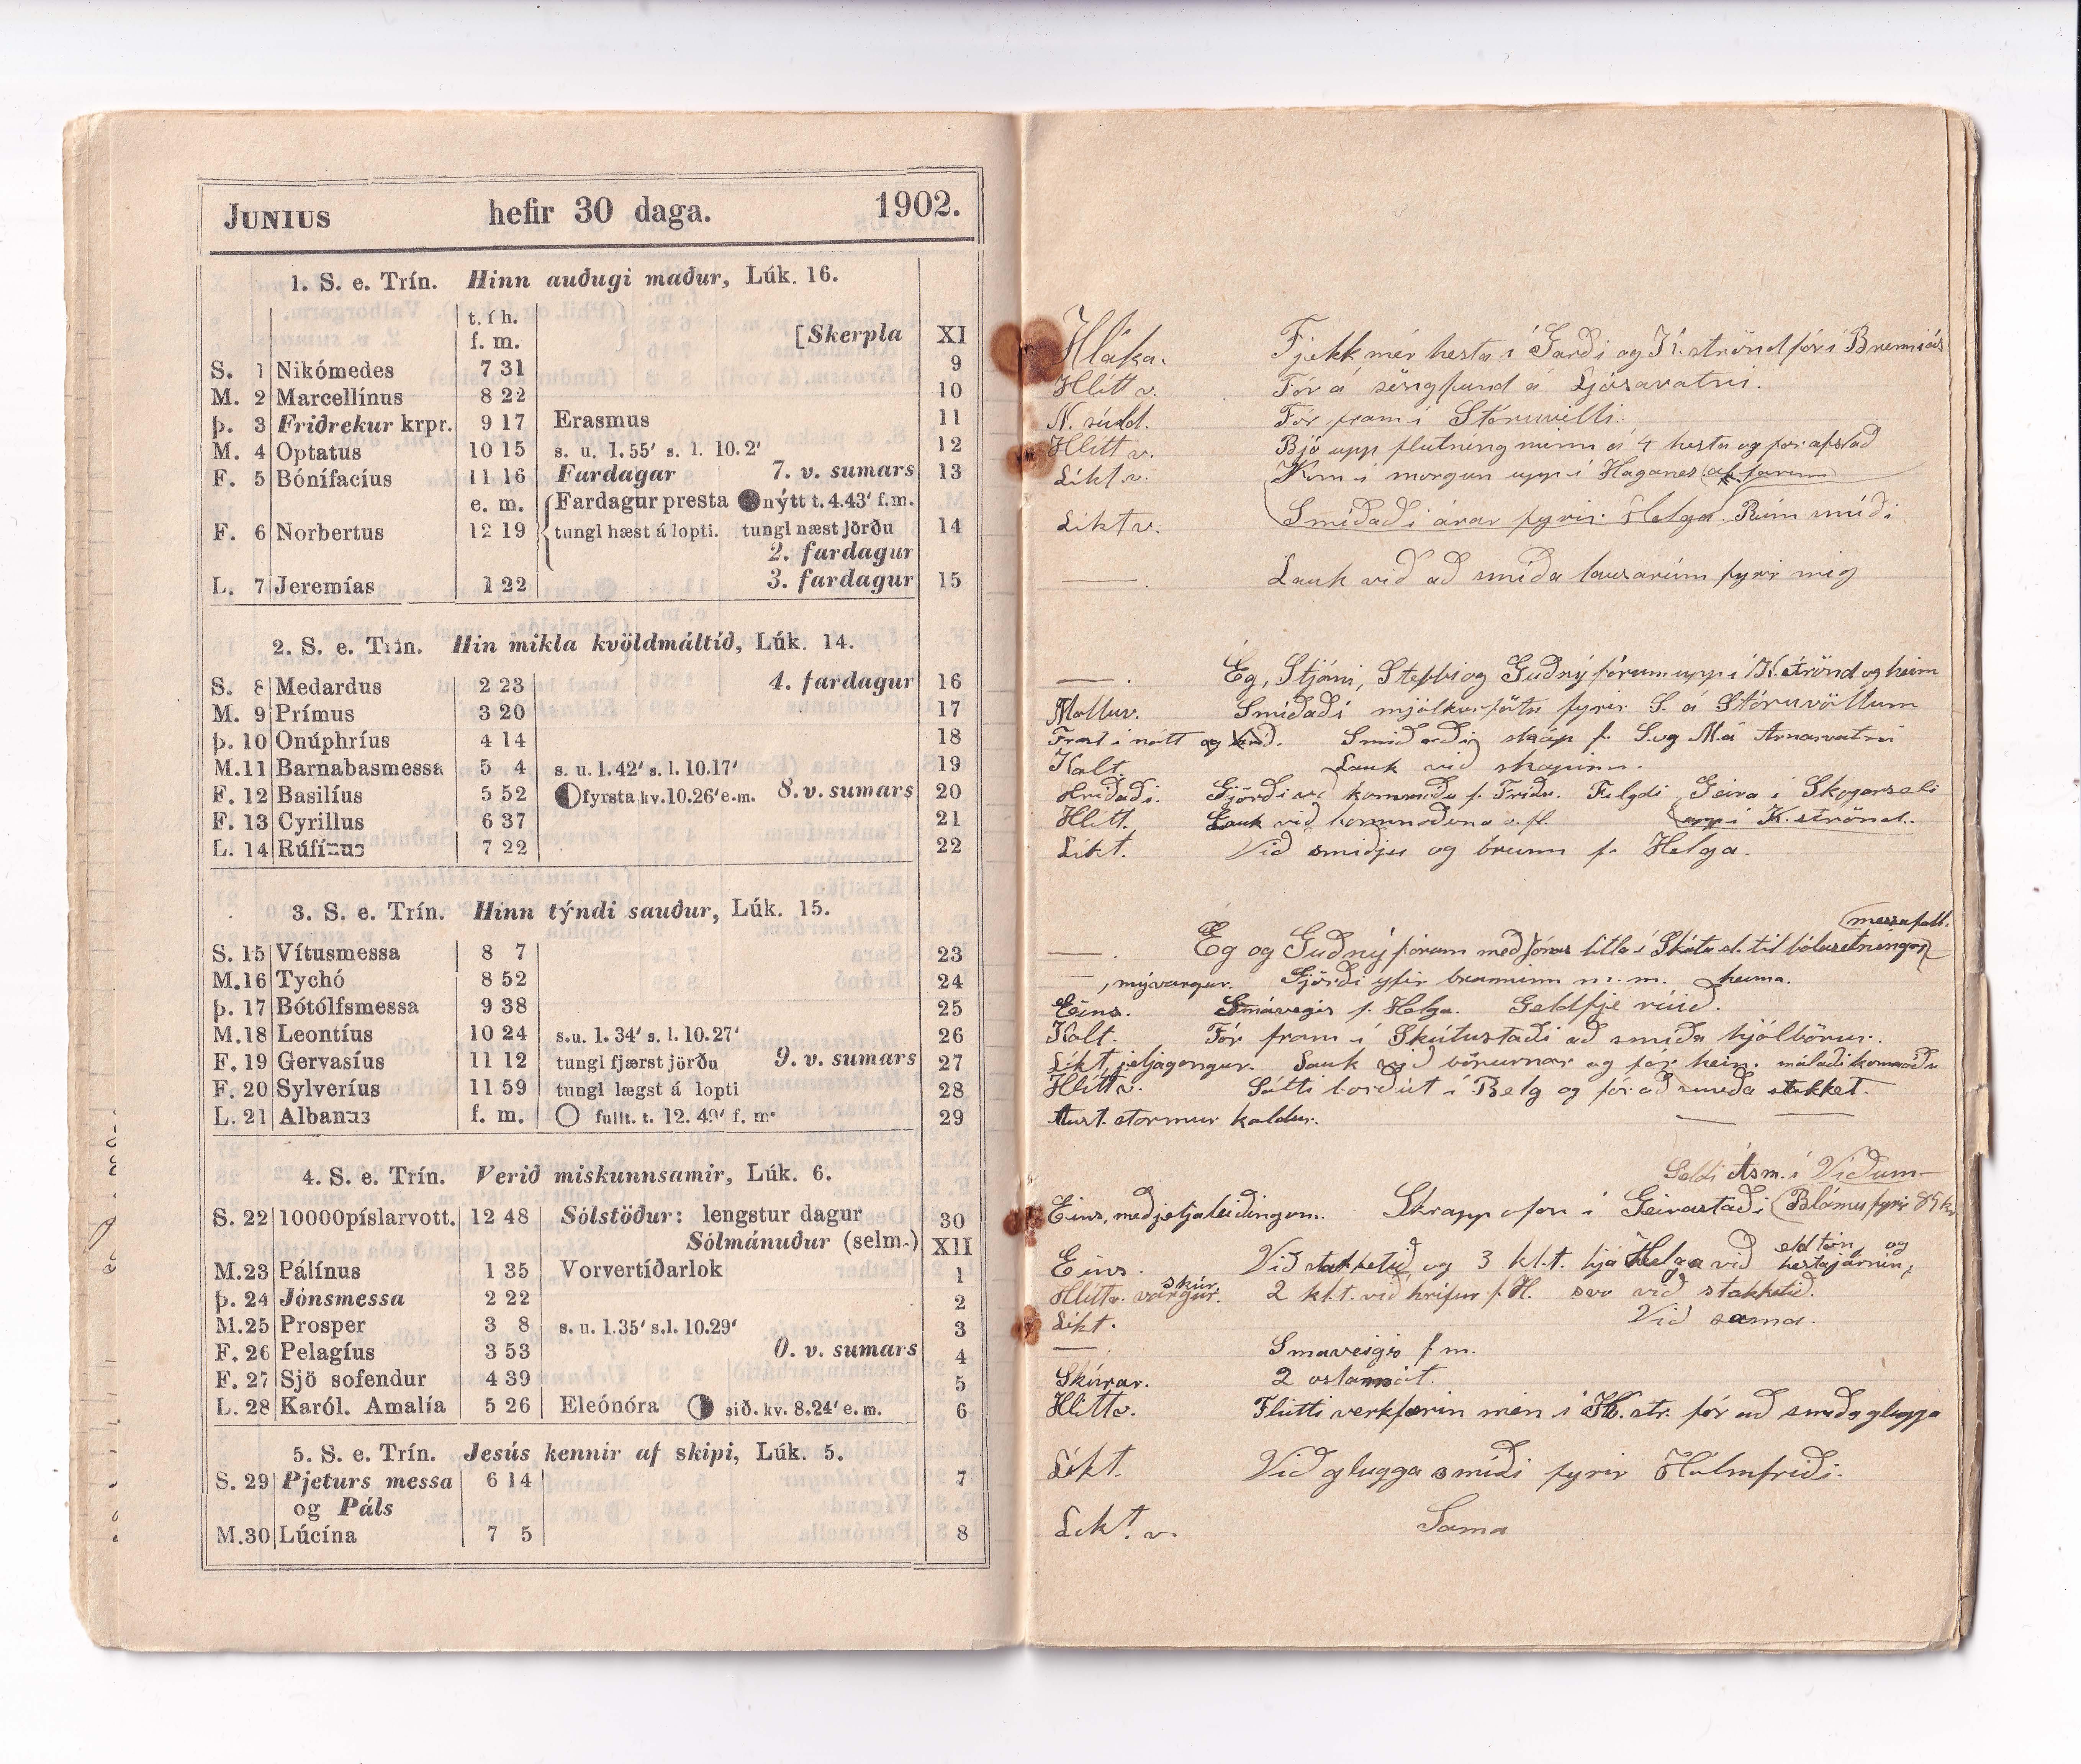 JUNIUS hefir 30 daga. 1902.
1. S. e. Trín. Hinn auðugi maður, Lúk. 16.
t. í h.
f. m. [Skerpla XI
S. 1 Nikómedes 7 31 9
M. 2 Marcellínus 8 22 10
Þ. 3 Friðrekur krpr. 9 17 Erasmus 11
M. 4 Optatus 10 15 s. u. 1.55' s. l. 10.2' 12
F. 5 Bónifacíus 11 16 Fardagar 7. v. sumars 13
e. m. Fardagur presta nýtt t. 4.43' f.m.
F. 6 Norbertus 12 19 tungl hæst á lopti. tungl næst jörðu 14
2. fardagur
L. 7 Jeremías 1 22 3. fardagur 15
2. S. e. Trín. Hin mikla kvöldmáltíð, Lúk. 14.
S. 8 Medardus 2 23 4. fardagur 16
M. 9 Prímus 3 20 17
Þ. 10 Onúphríus 4 14 18
M. 11 Barnabasmessa 5 4 s. u. 1.42' s. l. 10.17' 19
F. 12 Basilíus 5 52 fyrsta kv. 10.26' e.m. 8. v. sumars 20
F. 13 Cyrillus 6 37 21
L. 14 Rúfínus 7 22 22
3. S. e. Trín. Hinn týndi sauður, Lúk. 15.
S. 15 Vítusmessa 8 7 23
M. 16 Tychó 8 52 24
Þ. 17 Bótólfsmessa 9 38 25
M. 18 Leontíus 10 24 s.u. 1.34' s. l. 10.27' 26
F. 19 Gervasíus 11 12 tungl fjærst jörðu 9. v. sumars 27
F. 20 Sylveríus 11 59 tungl lægst á lopti 28
L. 21 Albanus f. m. fullt. t. 12.49' f. m. 29
4. S. e. Trín. Verið miskunnsamir, Lúk. 6.
S. 22 10000píslarvott. 12 48 Sólstöður: lengstur dagur 30
Sólmánuður (selm.) XII
M. 23 Pálínus 1 35 Vorvertíðarlok 1
Þ. 24 Jónsmessa 2 22 2
M. 25 Prosper 3 8 s. u. 1.35' s.l. 10.29' 3
F. 26 Pelagíus 3 53 0. v. sumars 4
F. 27 Sjö sofendur 4 39 5
L. 28 Karól. Amalía 5 26 Eleónóra síð. kv. 8.24' e. m. 6
5. S. e. Trín. Jesús kennir af skipi, Lúk. 5.
S. 29 Pjeturs messa 6 14 7
og Páls
M. 30 Lúcína 7 5 8
Hláka. Fjekk mér hesta í Garði og K. strönd fór í
Hlítt v. Fór á söngfund á Ljósavatni.
N. súld. Fór fram í Stóruvelli.
Hlítt v. Bjó upp flutning minn á 4 hesta og fór afstað
Líkt v. Kom í morgun upp í Haganes
Líkt v. Smíðaði árar fyrir Helga. Rúm smíði
Lauk við að smíða lausarúm fyrir mig
Eg, Stjáni, Stebbi og Guðný fórum upp í K. strönd og heim
Molluv. Smíðaði mjólkurfötu fyrir S. á Stóruvöllum
Frost í nótt og hríð. Smíðaði skáp f. S. og M. á Arnarvatni
Kalt. Lauk við skápinn.
Hríðaði. Gjörði við kommóðu f. Friðr. Fylgdi Geira í Skógarseli
Hlítt. Lauk við kommóðuna o. fl. upp í K. strönd.
Líkt. Við smiðju og brunn f. Helga.
messufall.
Eg og Guðný fórum með Jónas litla í Skútust. til bólusetningar
, mývargur. Gjörði yfir brunninn m. m. heima.
Eins. Smávegis f. Helga. Geldfje rúið.
Kalt. Fór fram í Skútustaði að smíða hjólbörur.
Líkt, jeljagangur. Lauk við börurnar og fór heim. málaði komoðu
Hlítt v. Sótti borðvið í Belg og fór að smíða stakket.
Aust. stormur kaldur.
Seldi Ásm. í Víðum
Eins, með jeljaleiðingum. Skrapp ofan í Geirastaði
Eins. Við stakketið, og 3 kl.t. hjá Helga við eldtöng og hestajárnin,
Hlítt v. skúr. vargur. 2 kl.t. við hrífur f. H. svo við stakketið.
Líkt. Við sama.
Smávegis f m.
Skúrar. 2 ostamót.
Hlítt v. Flutti verkfærin mín í K. str. fór að smíða glugga
Líkt. Við gluggasmíði fyrir Hólmfríði.
Líkt. v. Sama